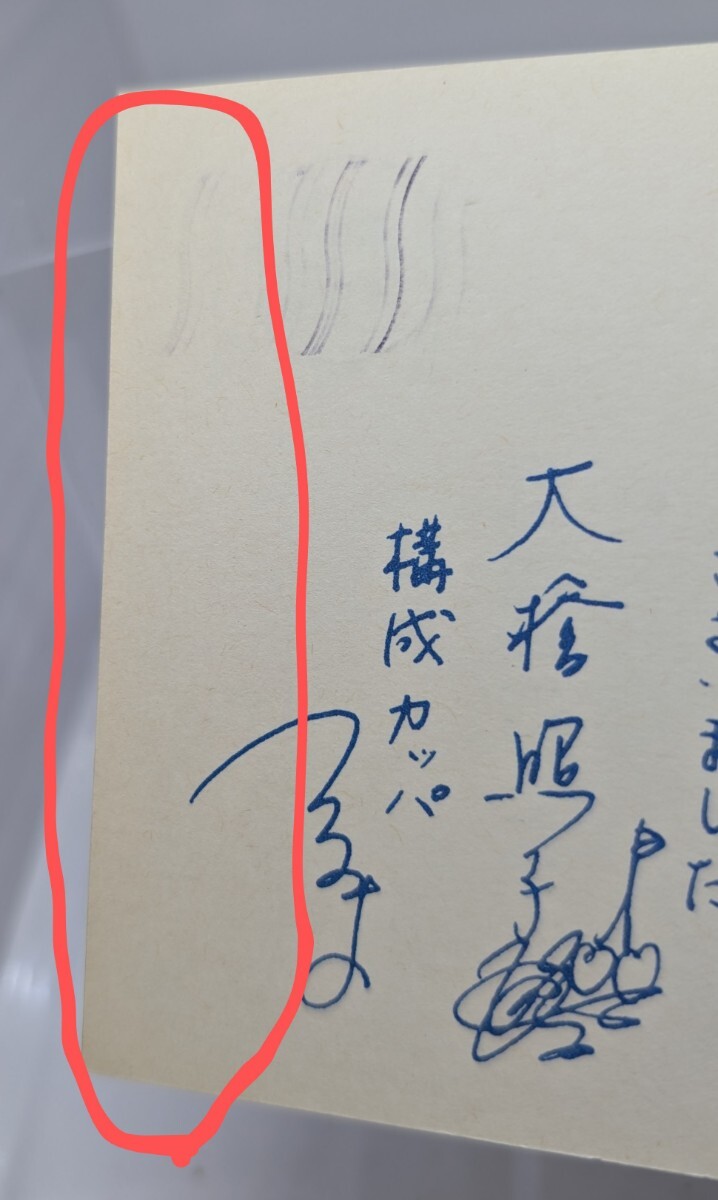 いました
大橋照子
構成カッパ